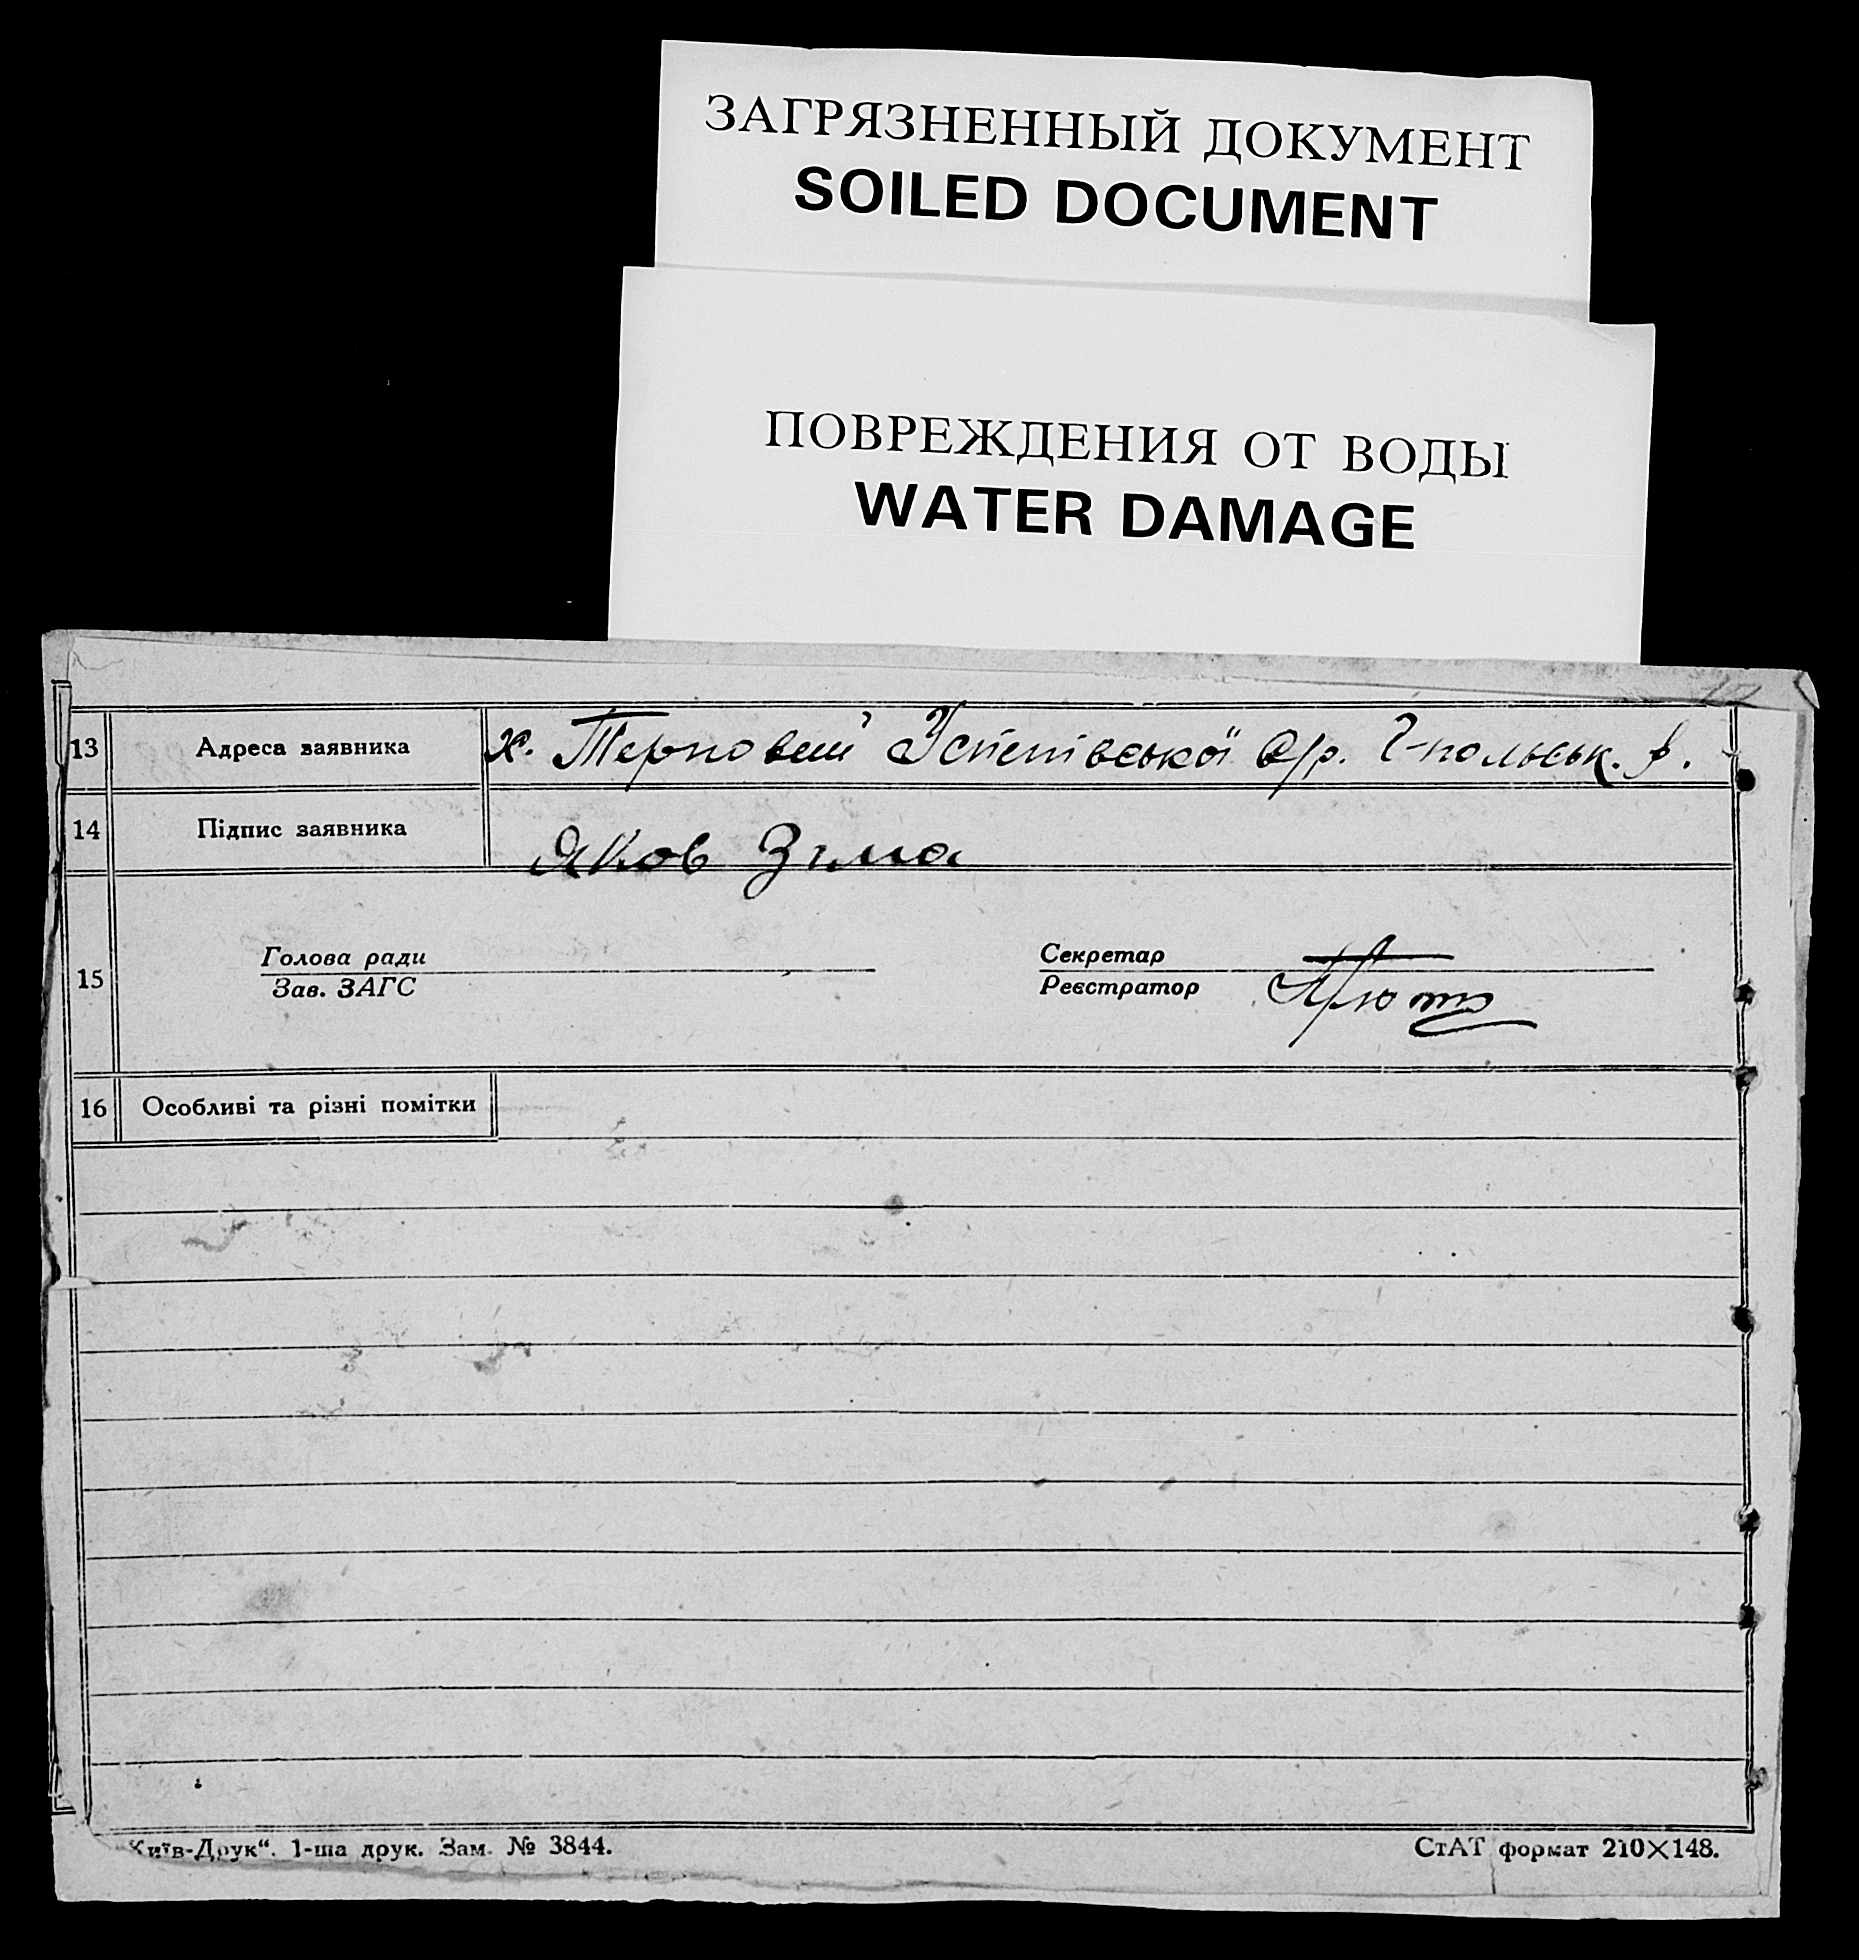 ЗАГРЯЗНЕННЫЙ ДОКУМЕНТ
SOILED DOCUMENT
ПОВРЕЖДЕНИЯ ОТ ВОДЫ
WATER DAMAGE
13 Адреса заявника х. Терновий Успенівської с/р. Г-польськ. р.
14 Підпис заявника Яков Зима
Голова ради Секретар
15
Зав. ЗАГС Реєстратор
16 Особливі та різні помітки
Київ-Друк“. 1-ша друк. Зам. № 3844. СтАТ формат 210×148.